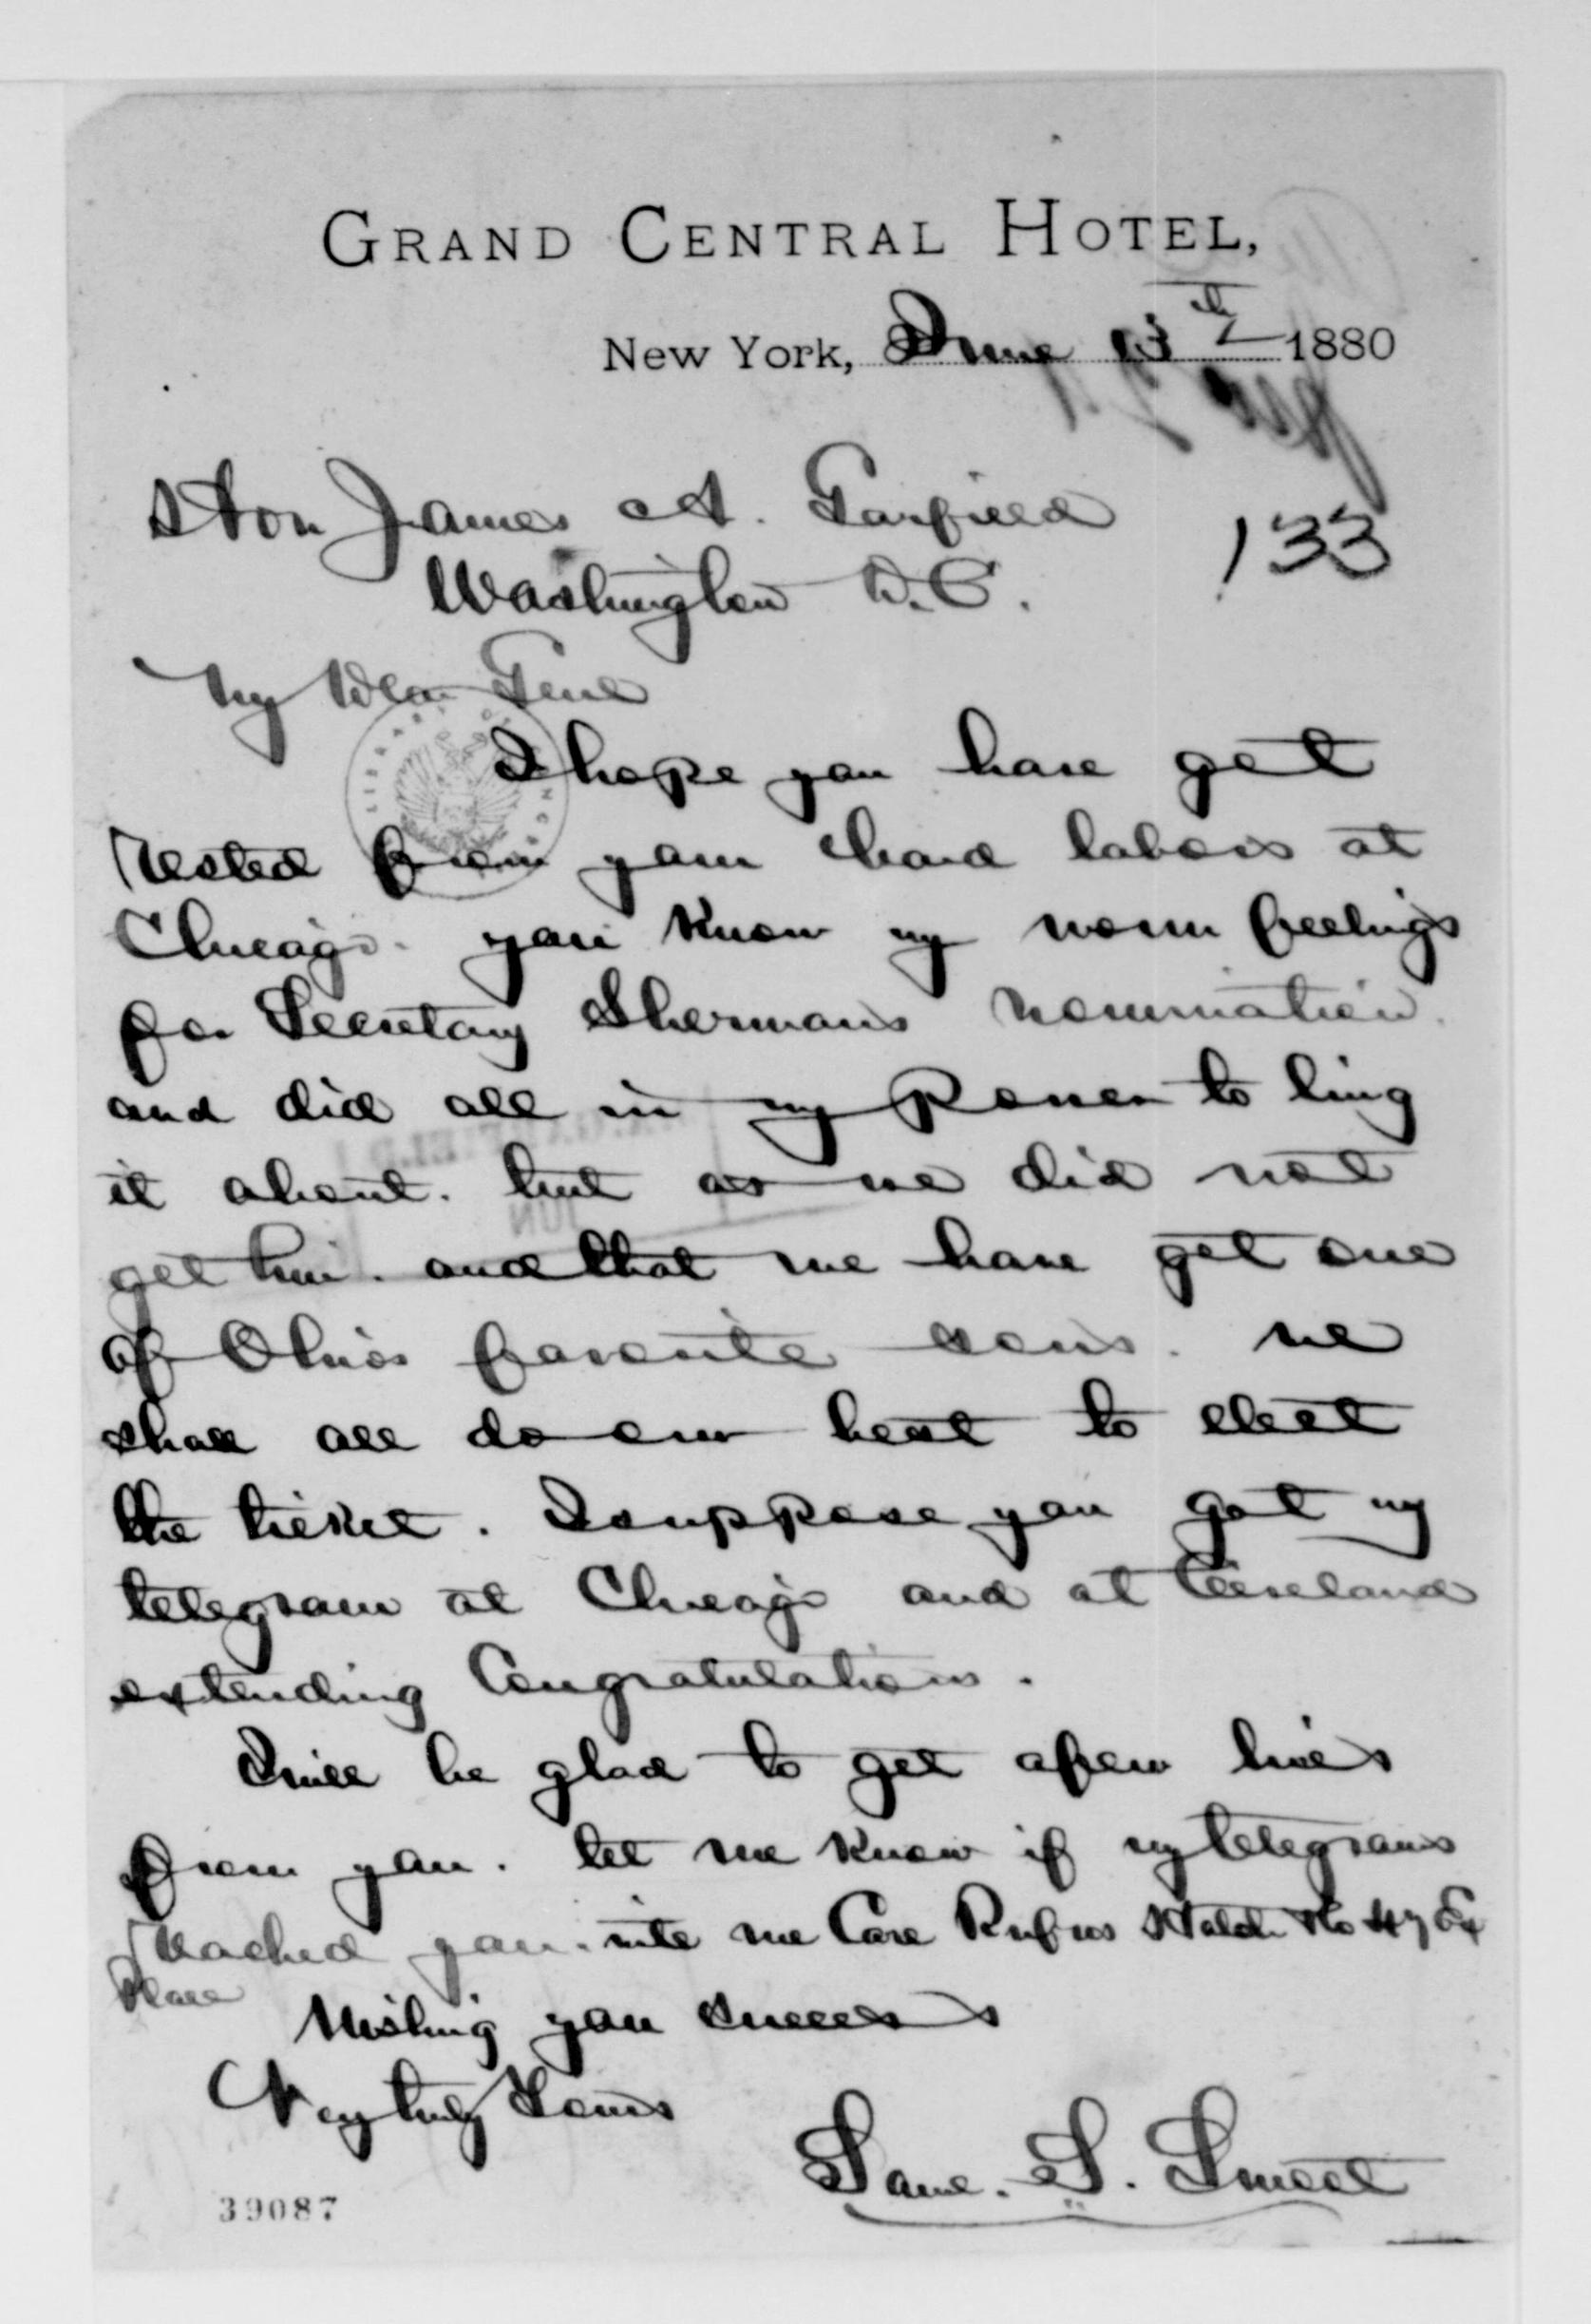 GRAND CENTRAL HOTEL,
New York, June 13th 1880
Hon James A. Garfield
133
Washington D.C.
My Dear Genl
I hope you have got
rested from your hard labors at
Chicago. you know my warm feelings
for Secretary Shermans nomination.
and did all in my Power to bring
it about. but as we did not
get him. and that we have got one
of Ohios favorite sons. we
shall all do our best to elect
the ticket. I suppose you got my
telegram at Chicago and at Cleveland
extending Congratulations.
I will be glad to get a few lines
from you. let me know if my telegrams
reached you. write me Care Rufus Hatch No 47 Ex
Place
Wishing you success
Very truly Yours
LIBRARY OF CONGRESS
JUN
39087